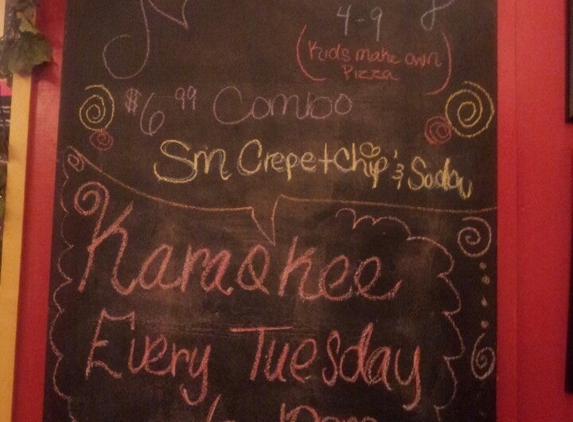 4-9
(Kids make own
Pizza)
$6.99 Combo
Sm Crepe + chip's & Soda
Karaokee
Every Tuesday